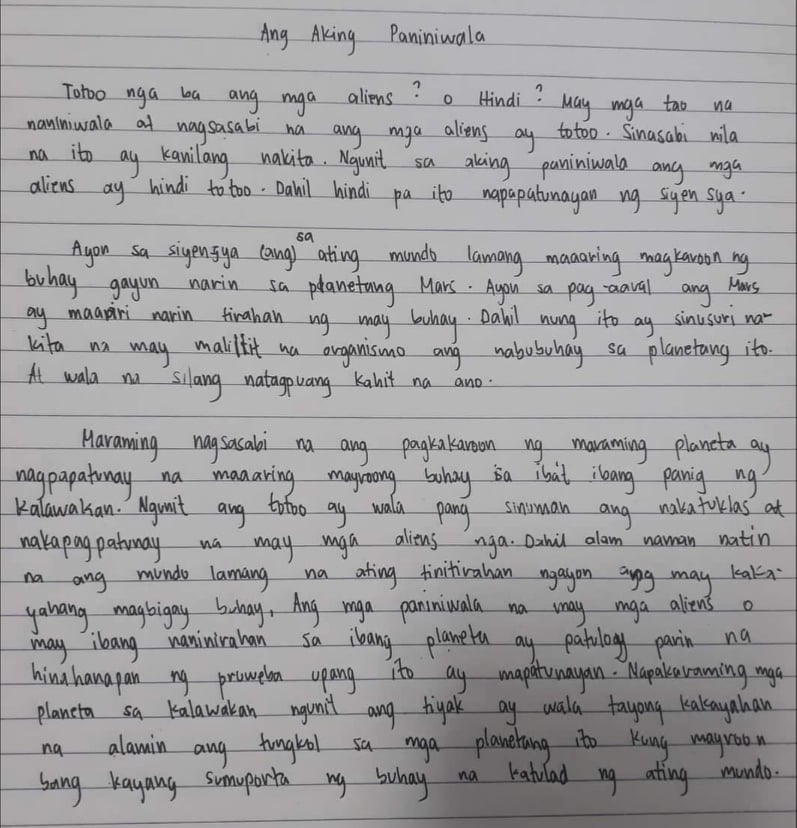 Ang Aking Paniniwala
Totoo nga ba ang mga aliens? o Hindi? May mga tao na
naniniwala at nagsasabi na ang mga aliens ay totoo. Sinasabi nila
na ito ay kanilang nakita. Ngunit sa aking paniniwala ang mga
aliens ay hindi totoo. Dahil hindi pa ito napapatunayan ng siyensya.
Ayon sa siyensya (ang) sa ating mundo lamang maaaring magkaroon ng
buhay gayun narin sa planetang Mars. Ayon sa pag-aaral ang Mars
ay maaari narin tirahan ng may buhay. Dahil nung ito ay sinusuri na-
kita na may maliliit na organismo ang nabubuhay sa planetang ito.
At wala na silang natagpuang kahit na ano.
Maraming nagsasabi na ang pagkakaroon ng maraming planeta ay
nagpapatunay na maaaring mayroong buhay sa iba't ibang panig ng
kalawakan. Ngunit ang totoo ay wala pang sinuman ang nakatuklas at
nakapagpatunay na may mga aliens nga. Dahil alam naman natin
na ang mundo lamang na ating tinitirahan ngayon ang may kaka-
yahang magbigay buhay, Ang mga paniniwala na may mga aliens o
may ibang naninirahan sa ibang planeta ay patuloy parin na
hinahanapan ng pruweba upang ito ay mapatunayan. Napakaraming mga
planeta sa kalawakan ngunit ang tiyak ay wala tayong kakayahan
na alamin ang tungkol sa mga planetang ito kung mayroon
bang kayang sumuporta ng buhay na katulad ng ating mundo.